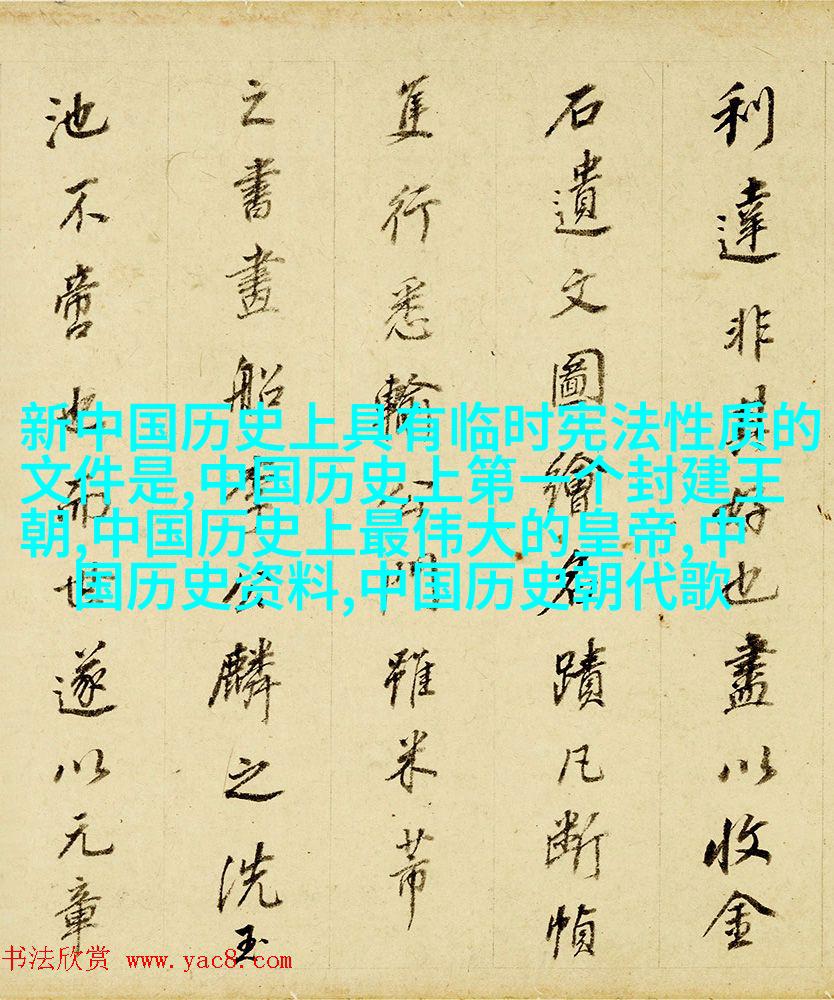 利達非其好也盡以收金
石遺文圖繪名蹟凡斷幀
隻行悉輸公門雖米芾
之書畫船李公麟之洗玉
池不啻也而世遂以元章
新中国历史上具有临时宪法性质的
文件是,中国历史上第一个封建王
朝,中国历史上最伟大的皇帝,中
国历史资料,中国历史朝代歌
书法欣赏 www.yac8.com